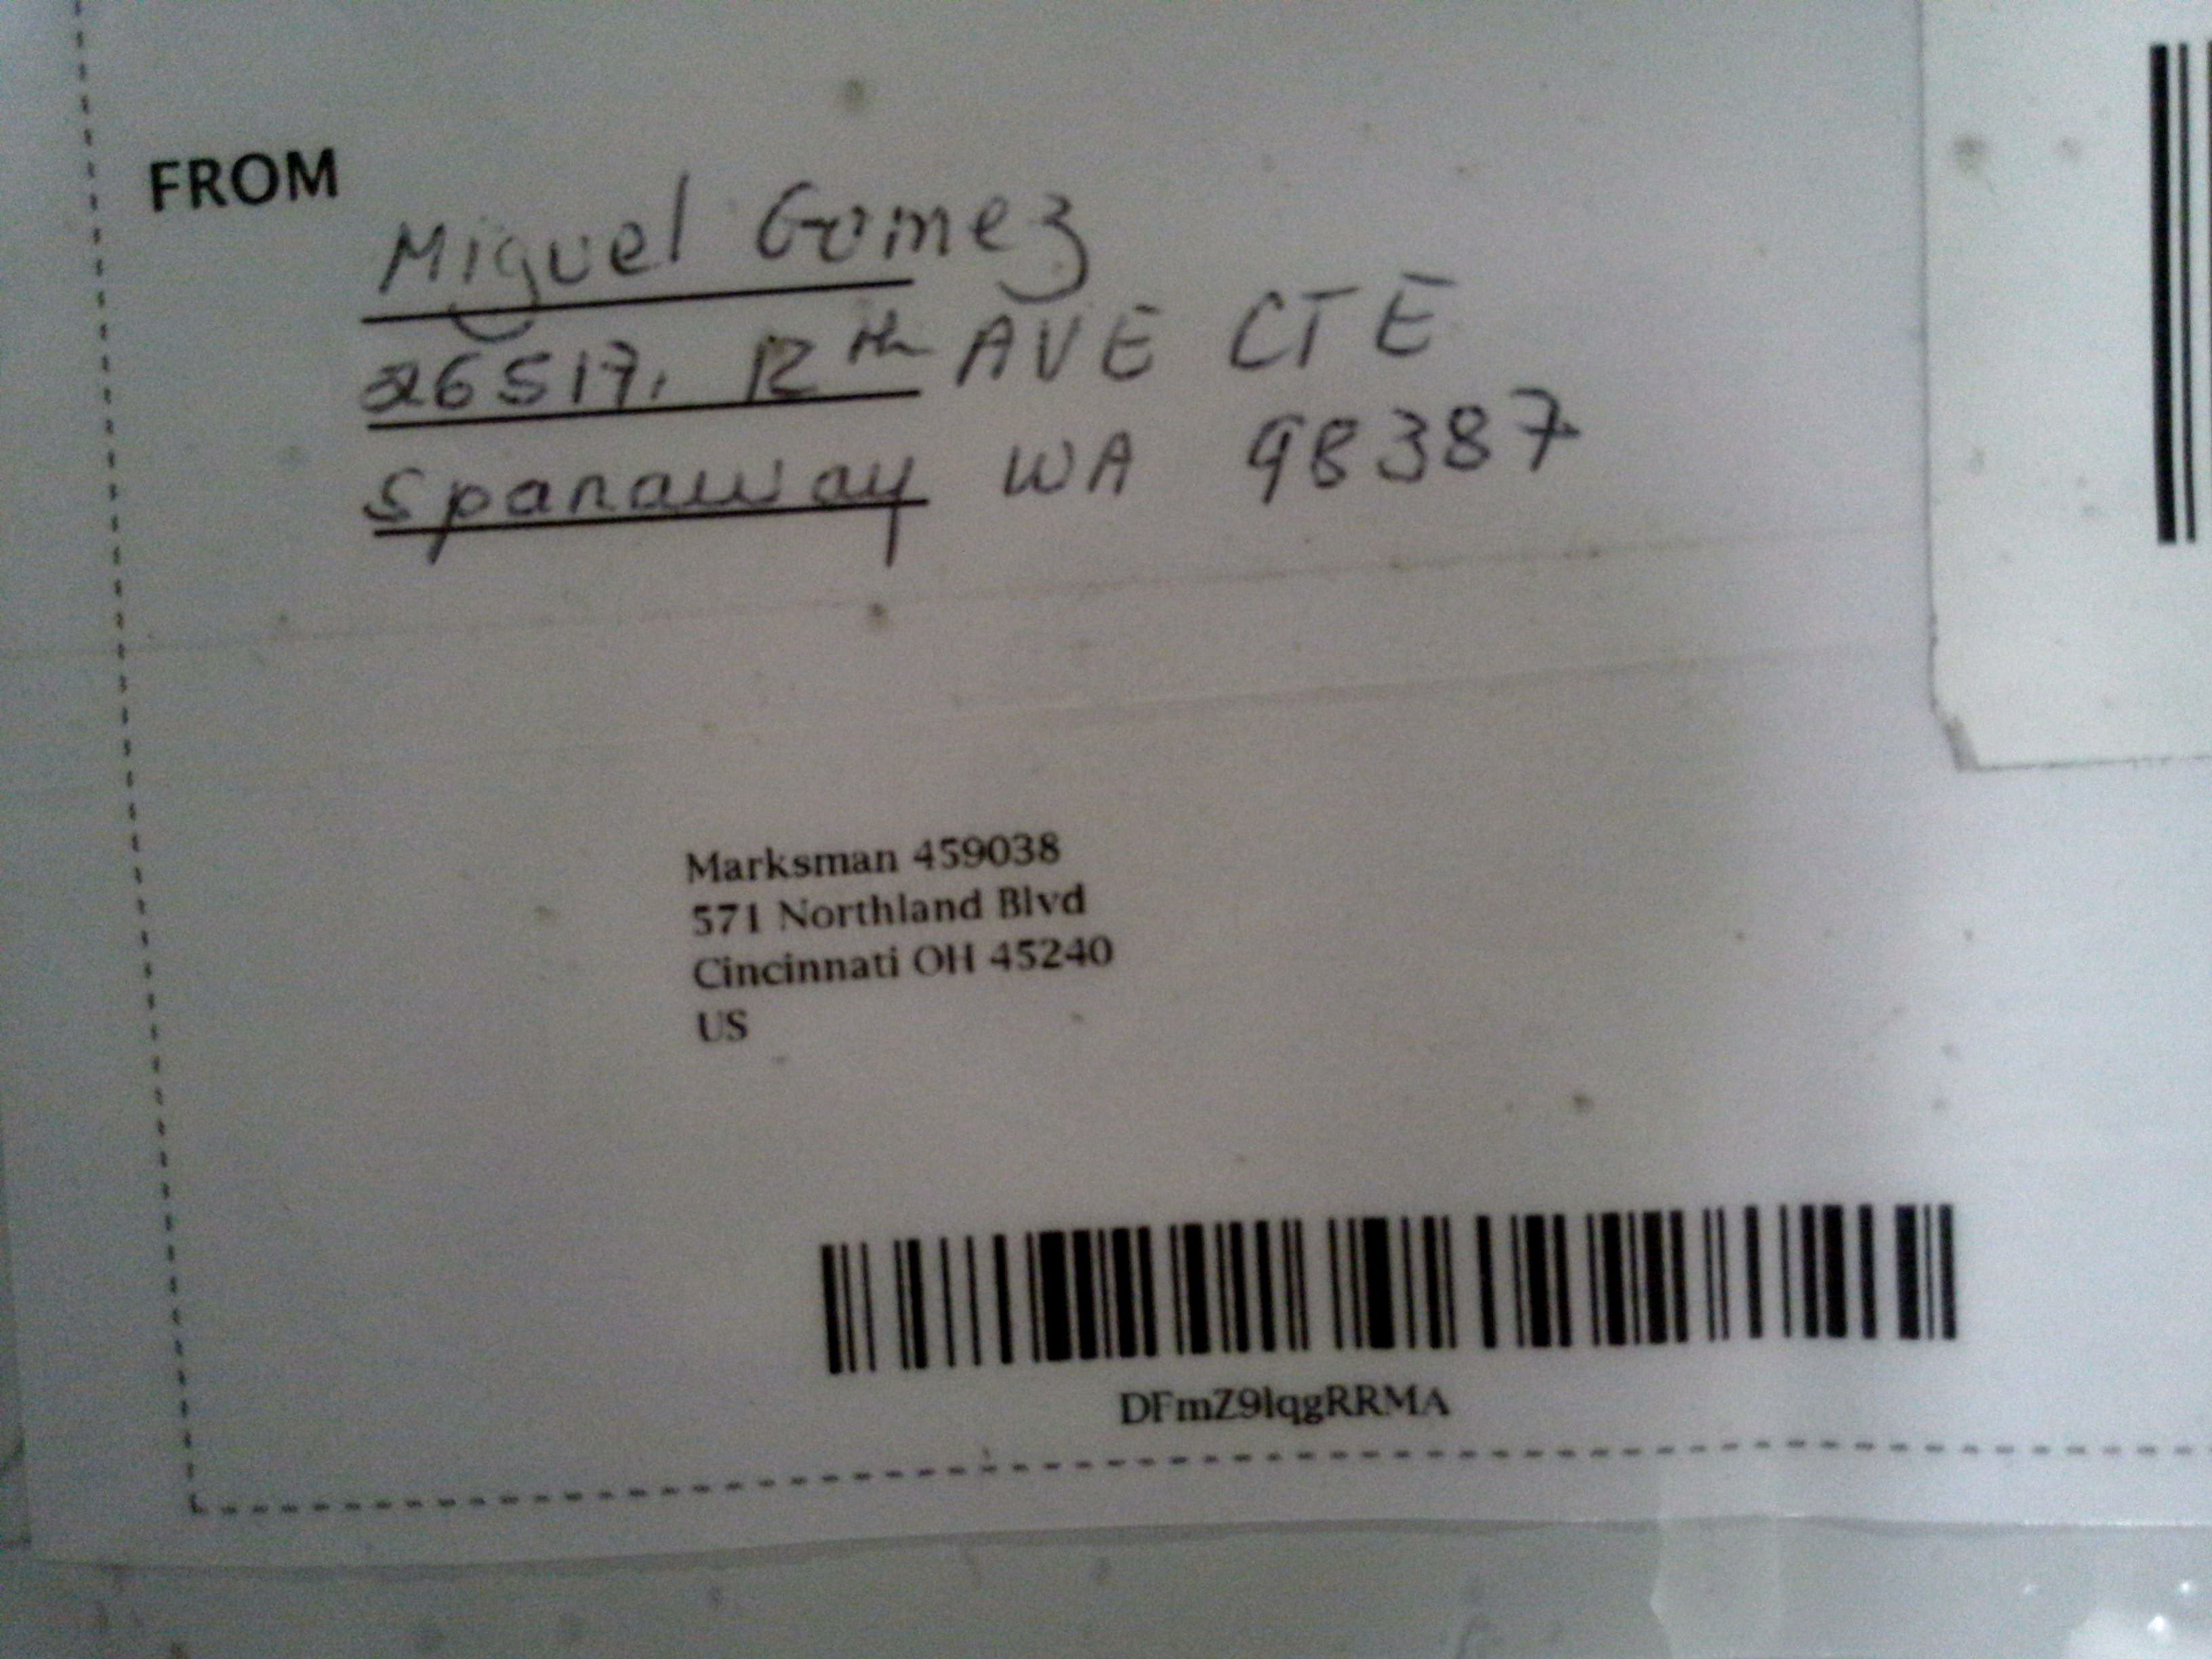 FROM
Miguel Gomez
26517, 12th AVE CTE
Spanaway WA 98387
Marksman 459038
571 Northland Blvd
Cincinnati OH 45240
US
DFmZ9lqgRRMA